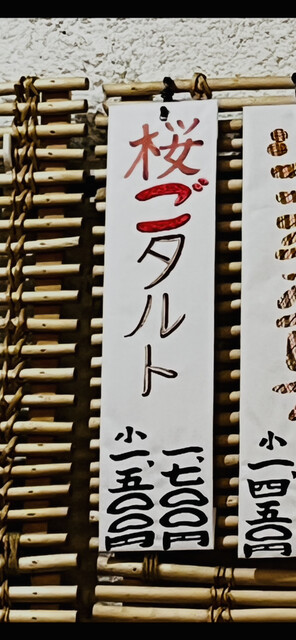 小一、四五〇円
桜ごタルト
一、七〇〇円
小一、五〇〇円